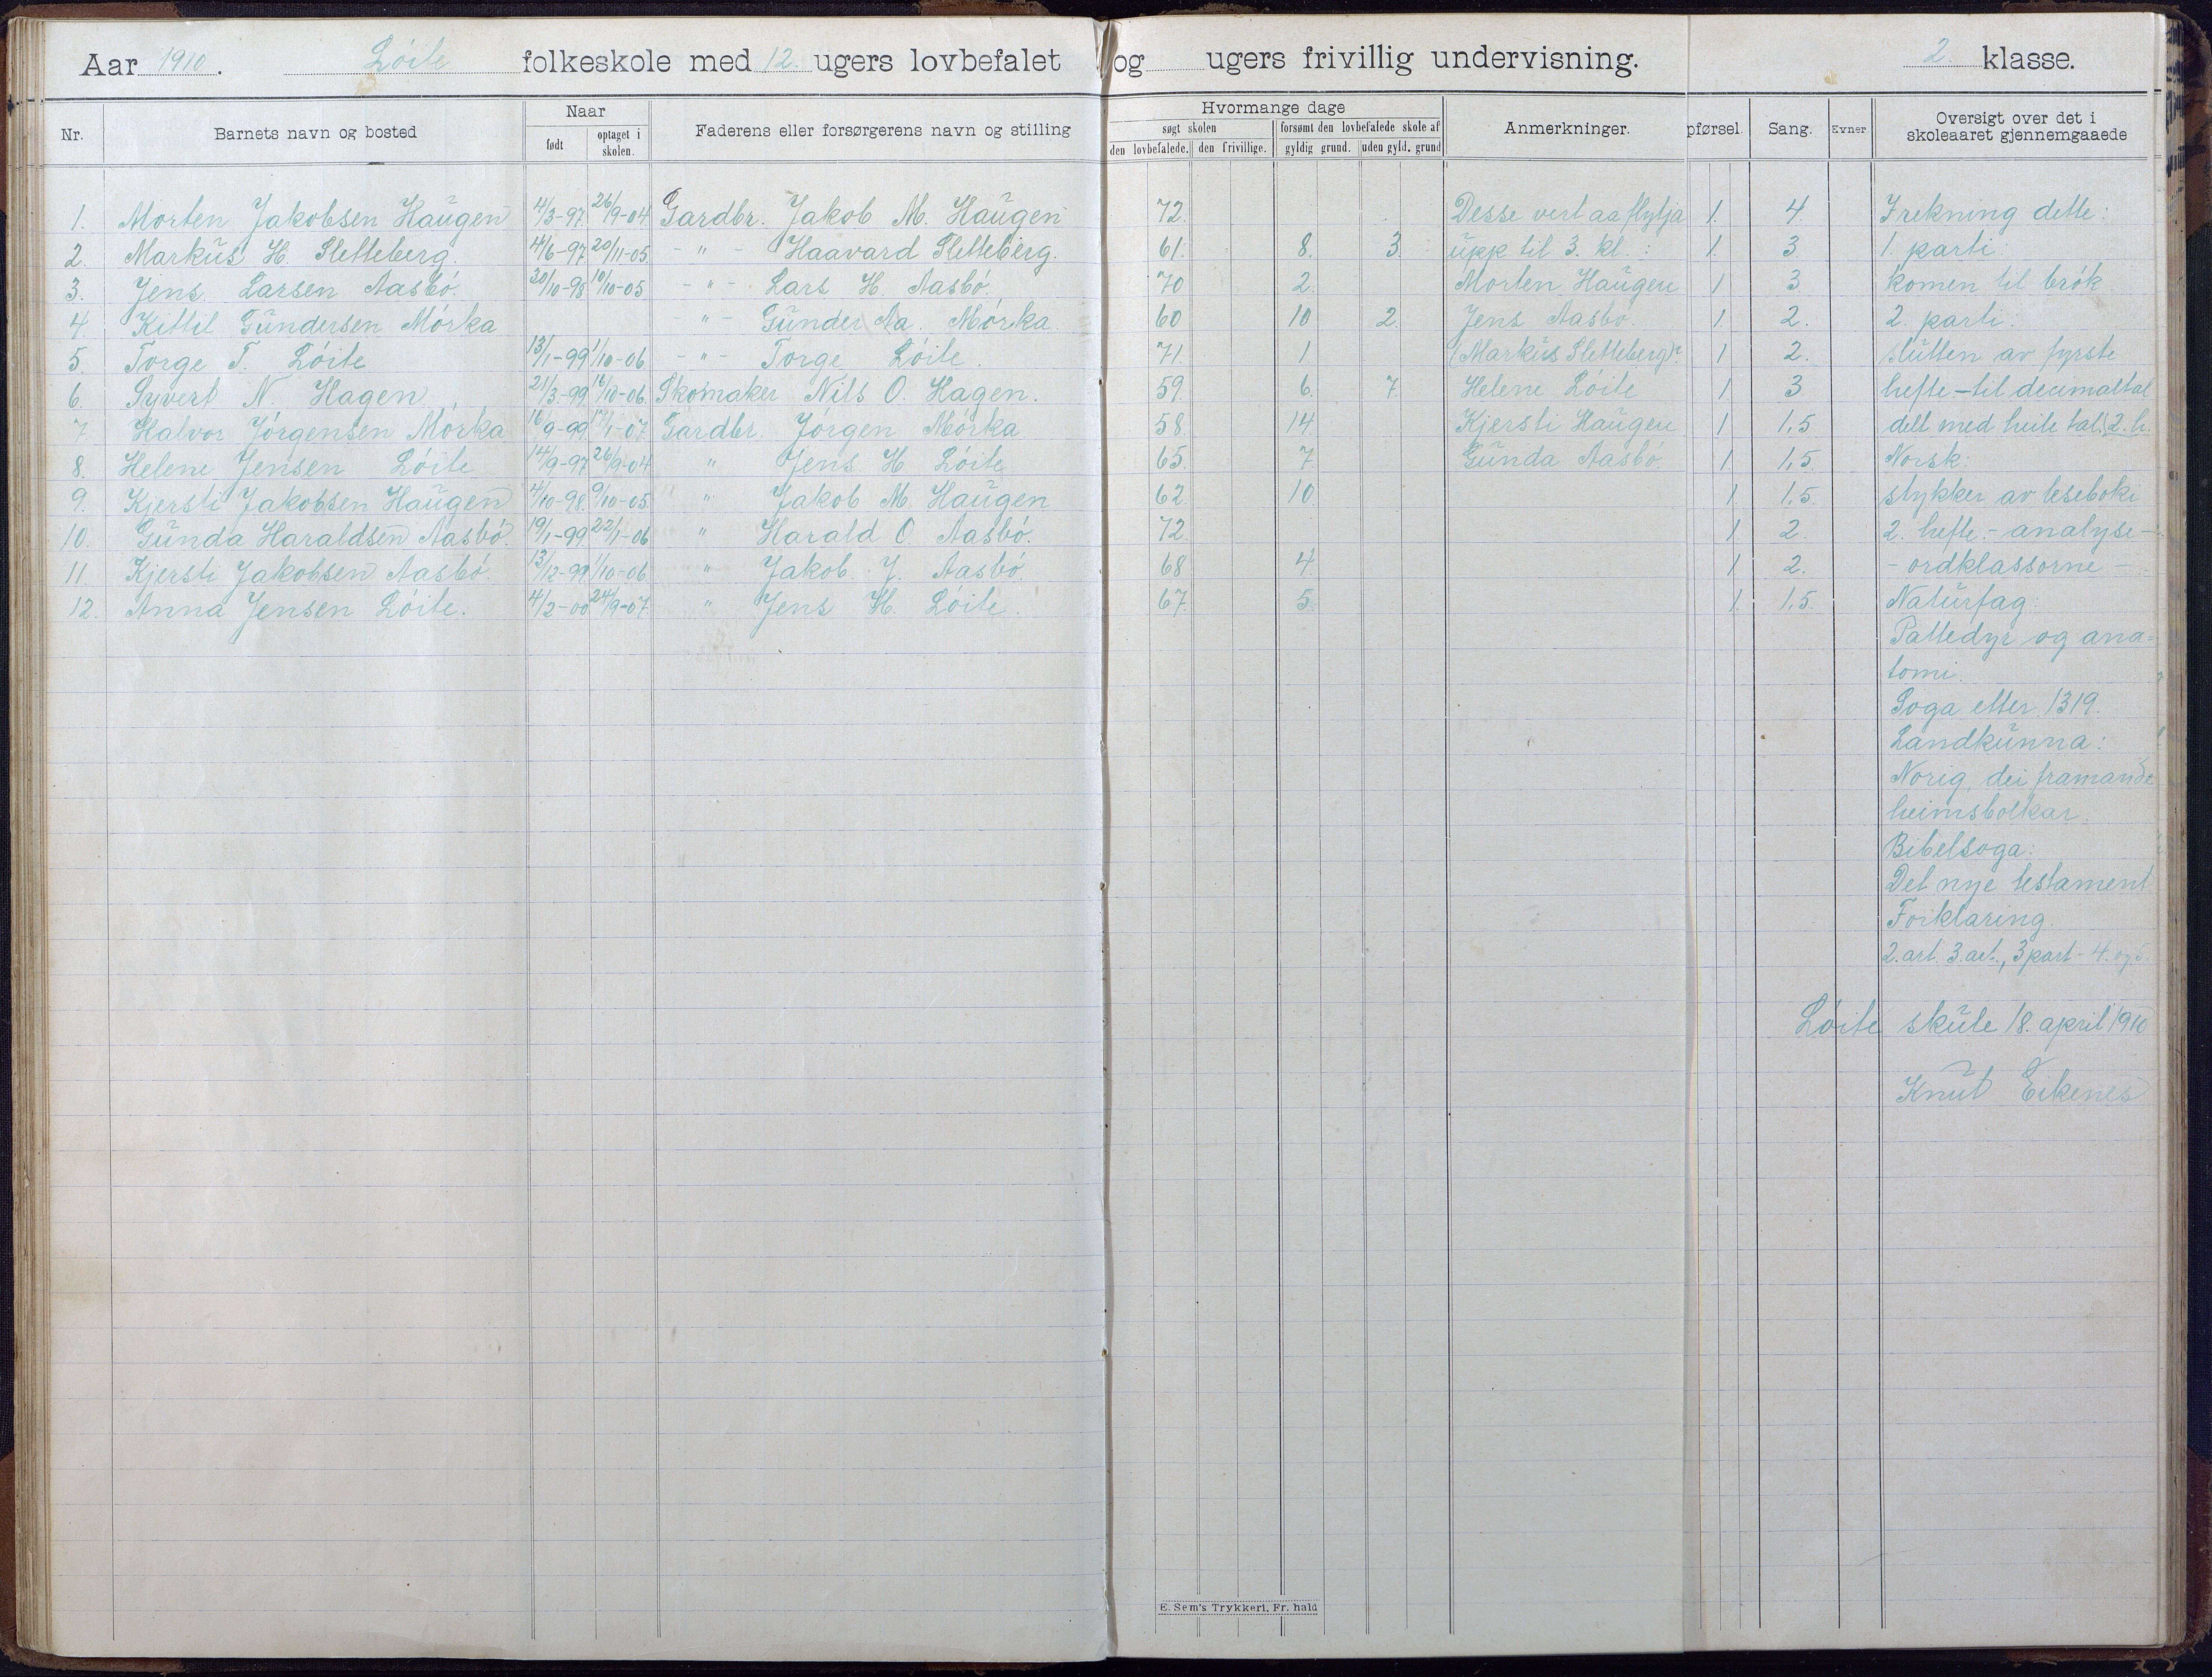 Aar 1910. Löite folkeskole med 12. ugers lovbefalet og ugers frivillig undervisning. 2. klasse.
Nr. Barnets navn og bosted Naar født optaget i skolen. Faderens eller forsørgerens navn og stilling Hvormange dage søgt skolen den lovbefalede. den frivillige. forsømt den lovbefalede skole af gyldig grund. uden gyld. grund Anmerkninger. pførsel. Sang. Evner. Oversigt over det i skoleaaret gjennemgaaede
1. Morten Jakobsen Haugen 4/3-97. 26/9-04 Gardbr. Jakob M. Haugen 72. Desse vert aa flytja 1. 4. I rekning dette:
2. Markus H. Sletteberg. 4/6-97. 20/11-05. - " - Haavard Sletteberg. 61. 8. 3. upp til 3. kl. : 1. 3 1. parti:
3. Jens Larsen Aasbö. 30/10-98 10/10-05 - " - Lars H. Aasbö. 70 2. Morten Haugen 1 3 komen til brök
4. Kittil Gundersen Mörka - " - Gunder Aa. Mörka. 60 10 2. Jens Aasbö. 1. 2. 2. parti:
5. Torge T. Löite 13/1-99 1/10-06 - " - Torge Löite. 71. 1. (Markus Sletteberg)? 1 2. slutten av fyrste
6. Syvert N. Hagen 21/3-99. 16/10-06. Skomaker Nils O. Hagen. 59. 6. 7. Helene Löite 1 3 hefte - til decimaltal
7. Halvor Jörgensen Mörka 16/9-99. 17/1-07. Gardbr. Jörgen Mörka 58 14 Kjersti Haugen 1 1,5 delt med heile tal. 2. h.
8. Helene Jensen Löite 14/9-97. 26/9-04 " Jens H. Löite 65. 7. Gunda Aasbö. 1. 1,5. Norsk:
9. Kjersti Jakobsen Haugen 4/10-98. 9/10-05. " Jakob M. Haugen 62. 10. 1. 1,5. stykker av leseboki
10. Gunda Haraldsen Aasbö. 19/1-99. 22/1-06 " Harald O. Aasbö. 72. 1 2. 2. hefte. - analyse -
11. Kjersti Jakobsen Aasbö. 13/12-99 1/10-06 " Jakob J. Aasbö. 68 4. 1 2. - ordklassorne -
12. Anna Jensen Löite. 4/2-00 24/9-07. " Jens H. Löite. 67. 5. 1. 1,5. Naturfag:
Pattedyr og ana=
tomi.
Soga etter 1319.
Landkunna:
Norig, dei framande
heimsbolkar.
Bibelsoga:
Det nye testament
Forklaring.
2. art. 3. art., 3 part - 4. og 5.
Löite skule 18. april 1910
Knut Eikenes
E. Sem's Trykkeri, Fr. hald